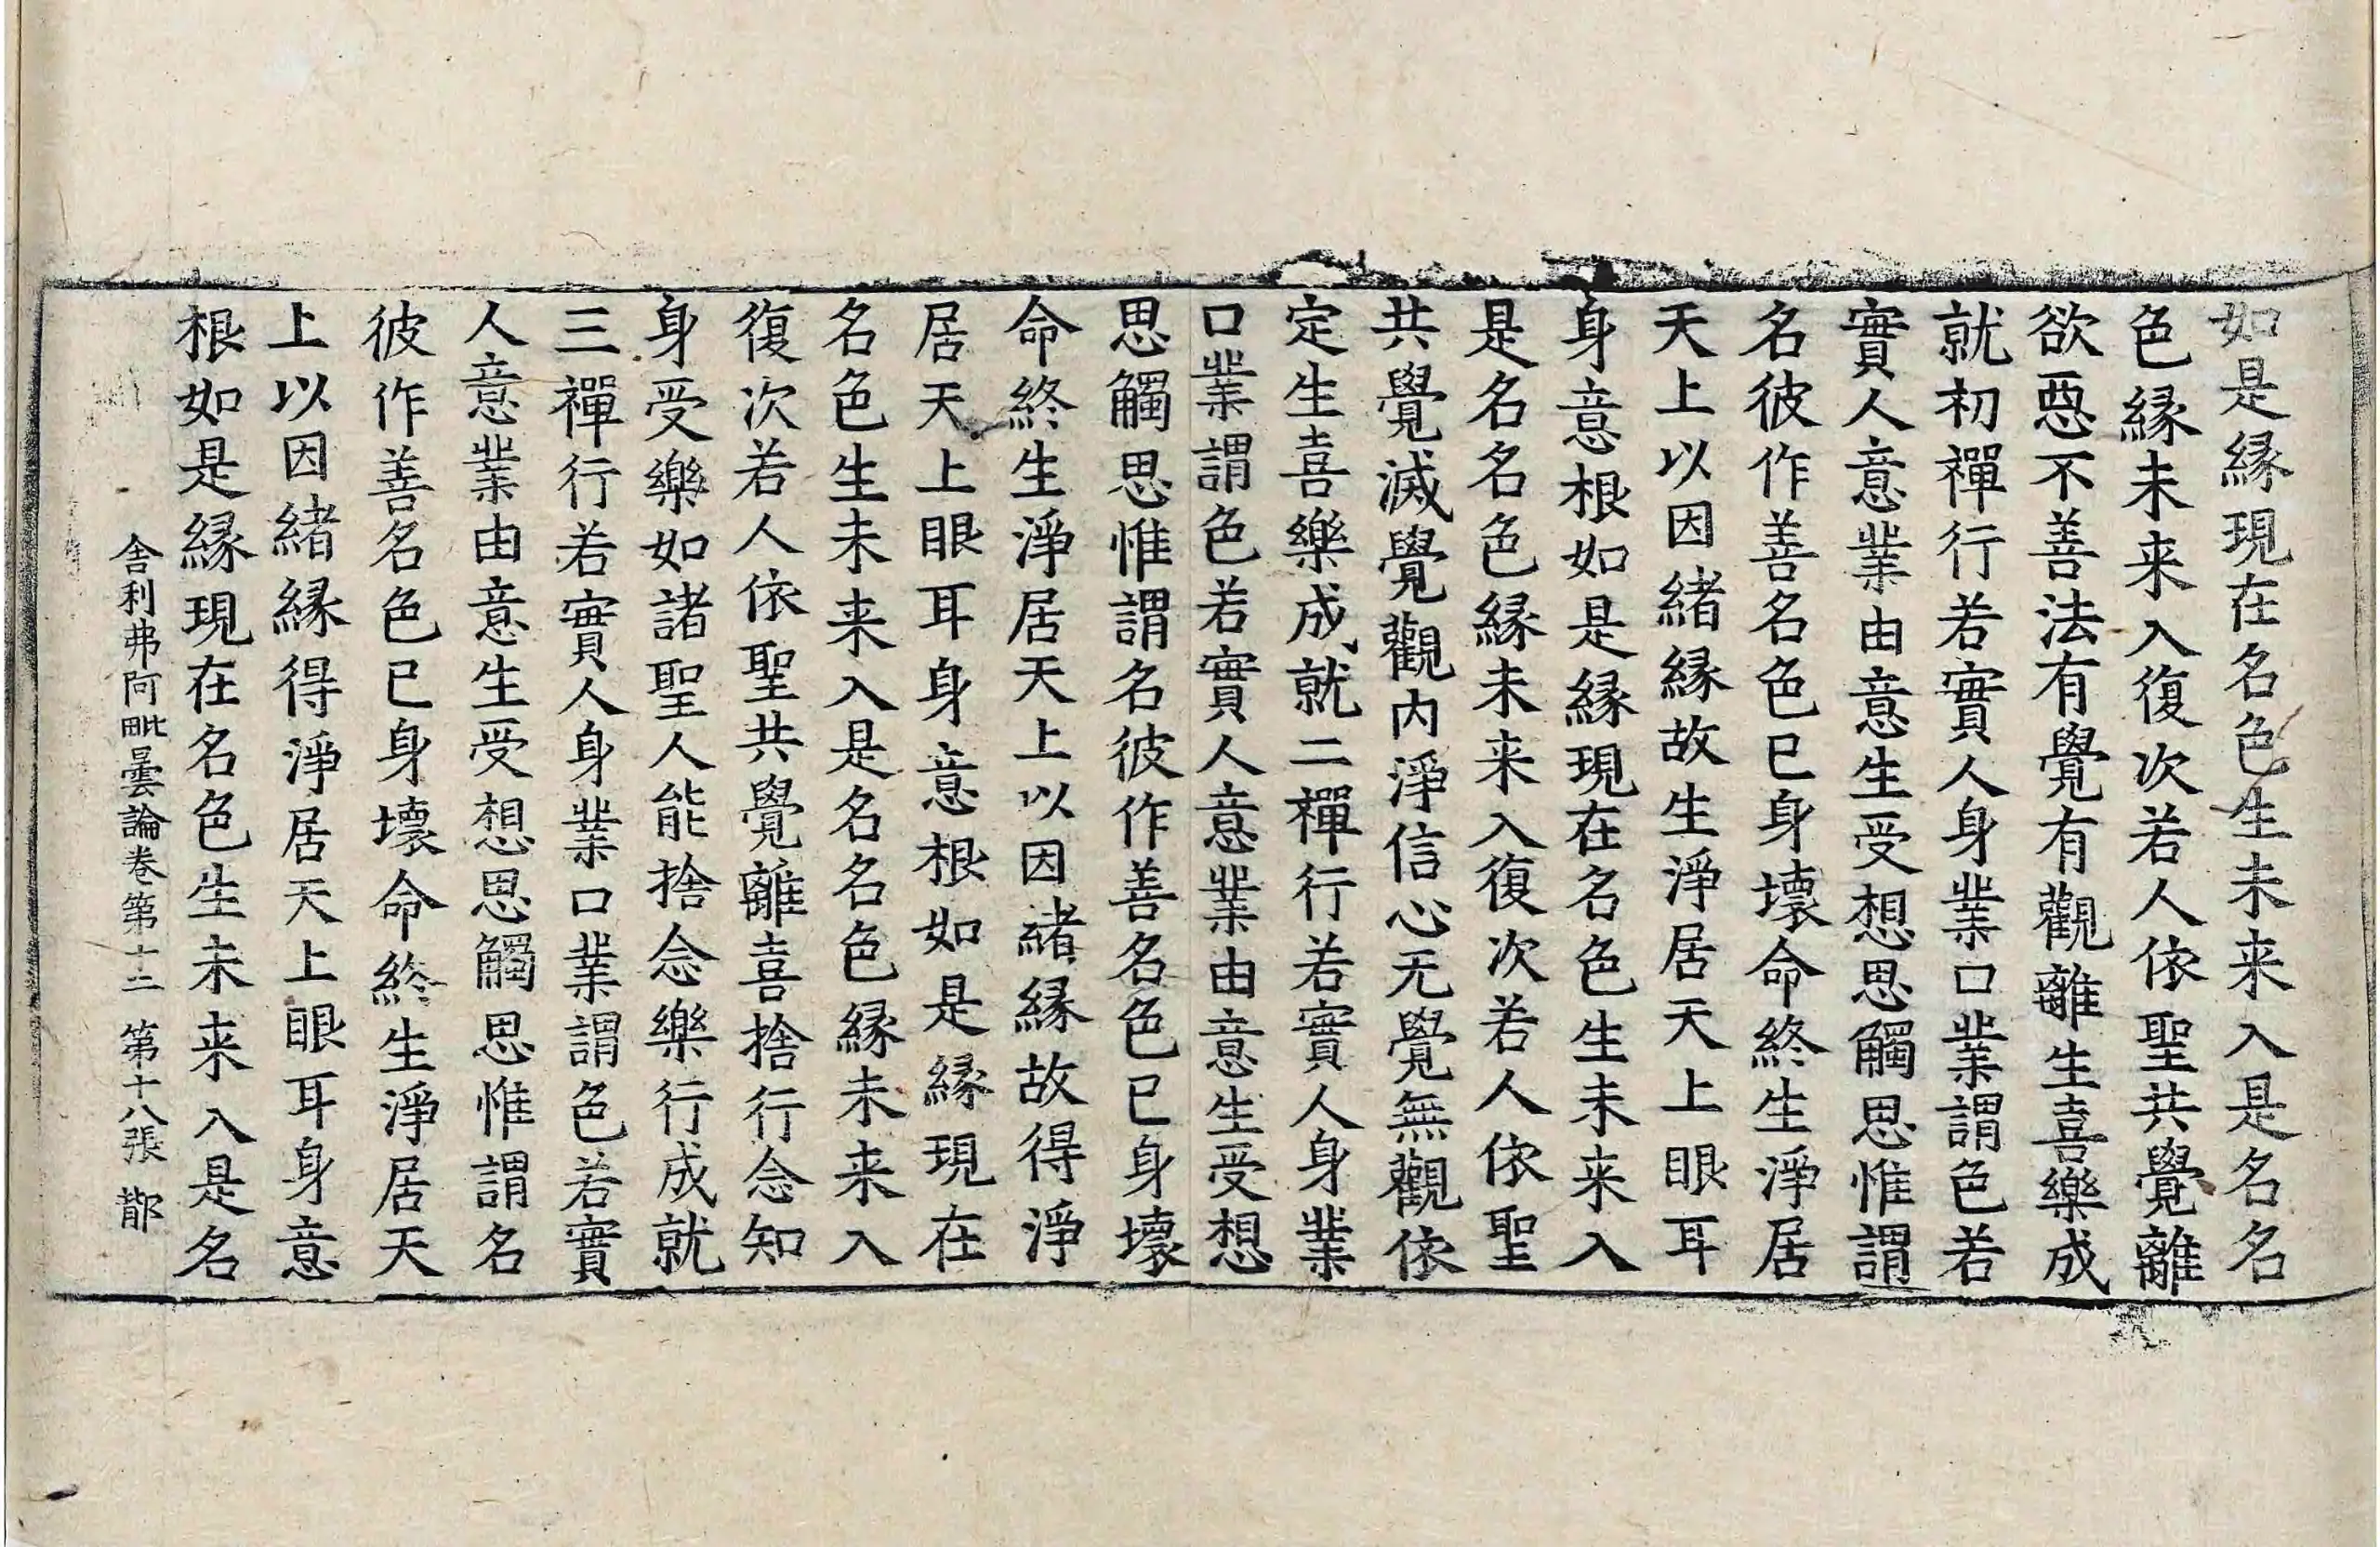 如是縁現在名色生未来入是名名
色縁未来入復次若人依聖共覺離
欲惡不善法有覺有觀離生喜樂成
就初禪行若實人身業口業謂色若
實人意業由意生受想思觸思惟謂
名彼作善名色已身壞命終生淨居
天上以因緒縁故生淨居天上眼耳
身意根如是縁現在名色生未来入
是名名色縁未来入復次若人依聖
共覺滅覺觀内淨信心无覺無觀依
定生喜樂成就二禪行若實人身業
口業謂色若實人意業由意生受想
思觸思惟謂名彼作善名色已身壞
命終生淨居天上以因緒縁故得淨
居天上眼耳身意根如是縁現在
名色生未来入是名名色縁未来入
復次若人依聖共覺離喜捨行念知
身受樂如諸聖人能捨念樂行成就
三禪行若實人身業口業謂色若實
人意業由意生受想思觸思惟謂名
彼作善名色已身壞命終生淨居天
上以因緒縁得淨居天上眼耳身意
根如是縁現在名色生未来入是名
舎利弗阿毗曇論卷第十二 第十八張 㪚